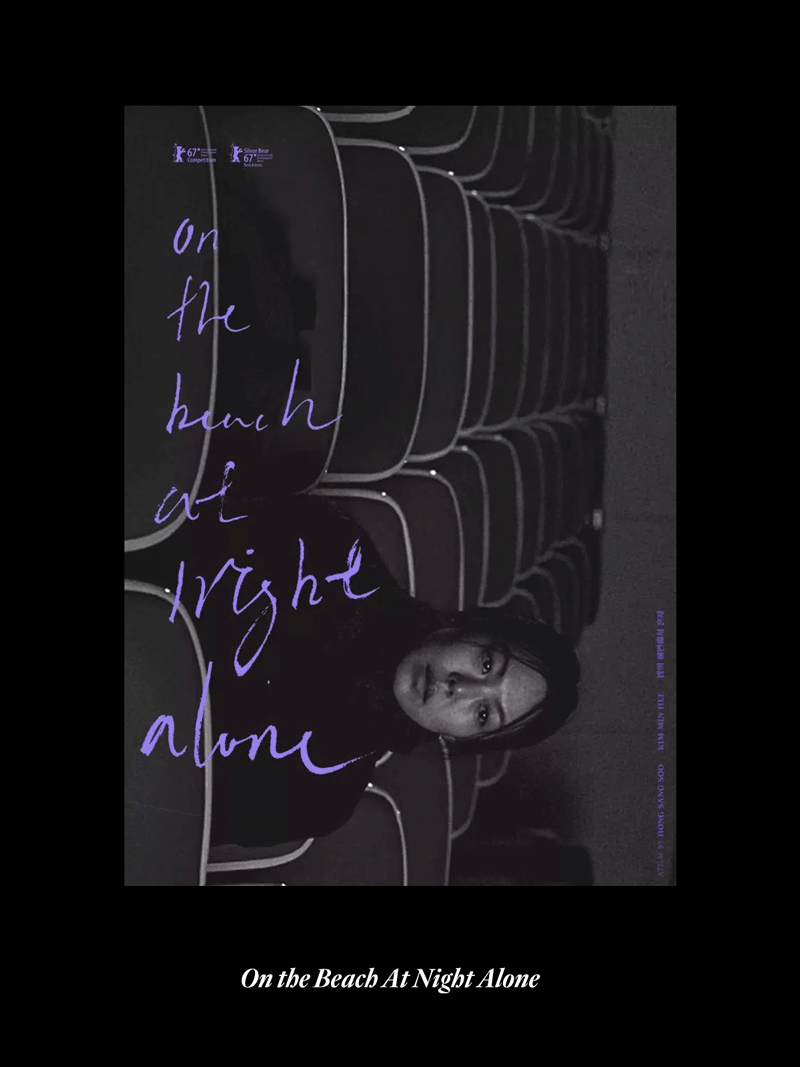 67
Competition
Silver Bear
67
on
the
beach
at
night
alone
A FILM BY HONG SANG SOO KIM MIN HEE 밤의 해변에서 혼자
On the Beach At Night Alone